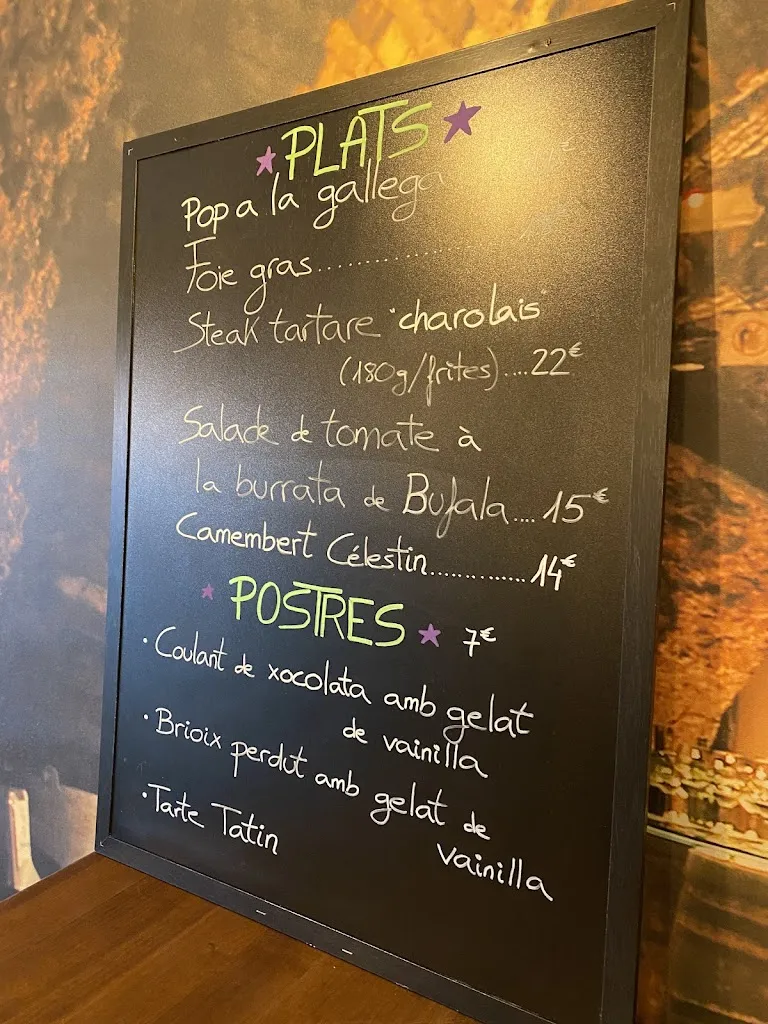 PLATS
Pop a la gallega
Foie gras...............
Steak tartare "charolais"
(180g/frites)....22€
Salade de tomate à
la burrata de Bufala....15€
Camembert Célestin.............14€
POSTRES 7€
· Coulant de xocolata amb gelat
de vainilla
· Brioix perdut amb gelat de
vainilla
· Tarte Tatin